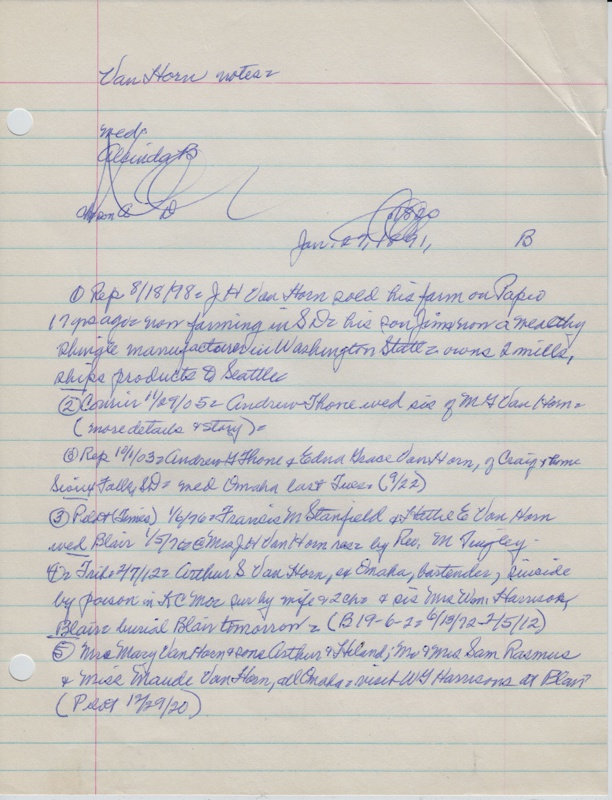 Van Horn notes=
med,
Alvinda B
D
Jan. 27, 1891, B
① Rep 8/18/98= J H Van Horn sold his farm on Papio
17 yrs ago= now farming in SD= his son Jim now a wealthy
shingle manufacturer in Washington State= owns 2 mills,
ships products to Seattle
② Courier 11/29/05= Andrew Thone wed sis of M G Van Horn=
(more details & story)=
③ Rep 10/1/03= Andrew G Thone & Edna Grace Van Horn, of Craig & home
Sioux Falls, SD= med Omaha last Tues= (9/22)
③ Pilot (Times) 1/6/76= Francis M Stanfield & Hattie E Van Horn
wed Blair 1/5/76 @ Mrs J H Van Horn res= by Rev. M.
4)= Trib= 2/7/12= Arthur S Van Horn, ex Omaha, bartender, suicide
by poison in KC Mo= sur by wife & 2 ch= & sis Mrs Wm. Harrison,
Blair= burial Blair tomorrow = (B 19-6-2= 6/13/72-2/5/12)
⑤ Mrs Mary Van Horn & sons Arthur & Leland; Mr & Mrs Sam Rasmus
& Miss Maude Van Horn, all Omaha= visit W G Harrisons at Blair
(Pilot 12/29/20)